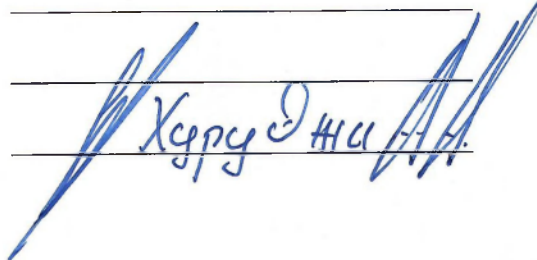 Хуруджи А.А.